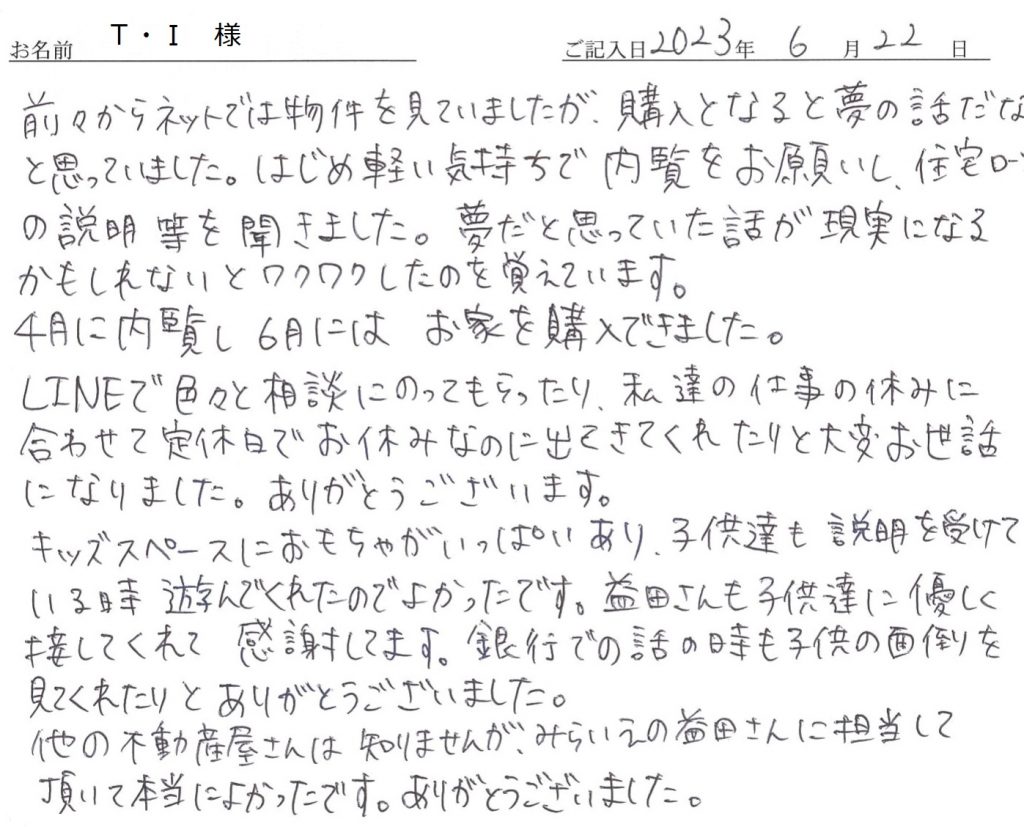 お名前 T・I 様 ご記入日 2023年 6月 22日
前々からネットでは物件を見ていましたが、購入となると夢の話だな
と思っていました。はじめ軽い気持ちで内覧をお願いし、住宅ロー
の説明等を聞きました。夢だと思っていた話が現実になる
かもしれないとワクワクしたのを覚えています。
4月に内覧し6月には お家を購入できました。
LINEで色々と相談にのってもらったり、私達の仕事の休みに
合わせて定休日でお休みなのに出てきてくれたりと大変お世話
になりました。ありがとうございます。
キッズスペースにおもちゃがいっぱいあり、子供達も説明を受けて
いる時 遊んでくれたのでよかったです。益田さんも子供達に優しく
接してくれて 感謝してます。銀行での話の時も子供の面倒を
見てくれたりとありがとうございました。
他の不動産屋さんは知りませんが、みらいえの益田さんに担当して
頂いて本当によかったです。ありがとうございました。